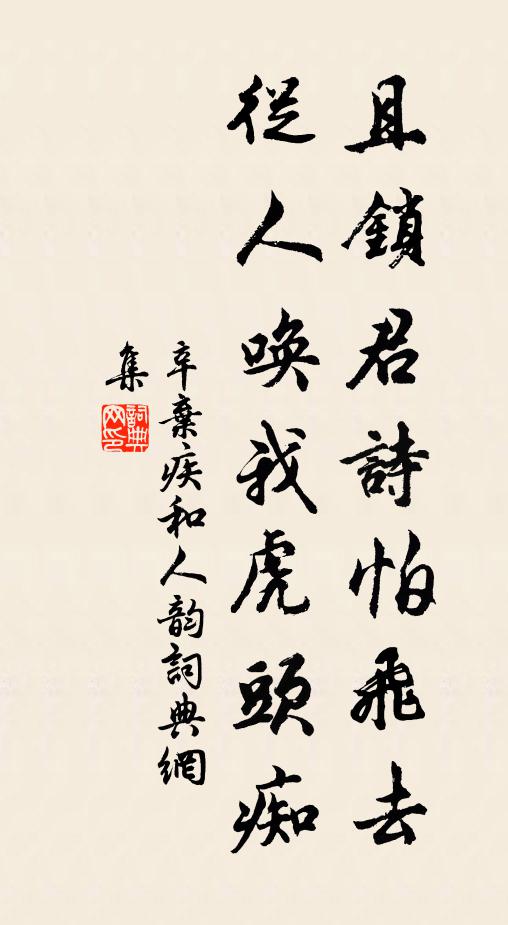 且鎖君詩怕飛去
從人喚我虎頭痴
辛棄疾和人韵詞典網
集
詞典
网印